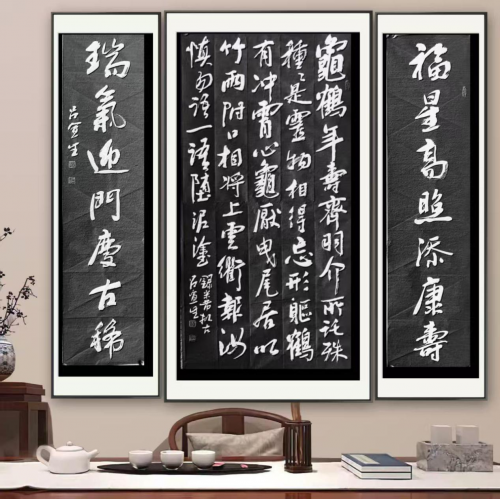 福星高照添康壽
龜鶴年壽齊羽介所託殊
種〻是靈物相得忘形軀鶴
有冲霄心龜厭曳尾居以
竹兩附口相將上雲衢報汝
慎勿語一語墮泥塗
錄米芾拟古
呂宣生
瑞氣迎門慶古稀
呂宣生